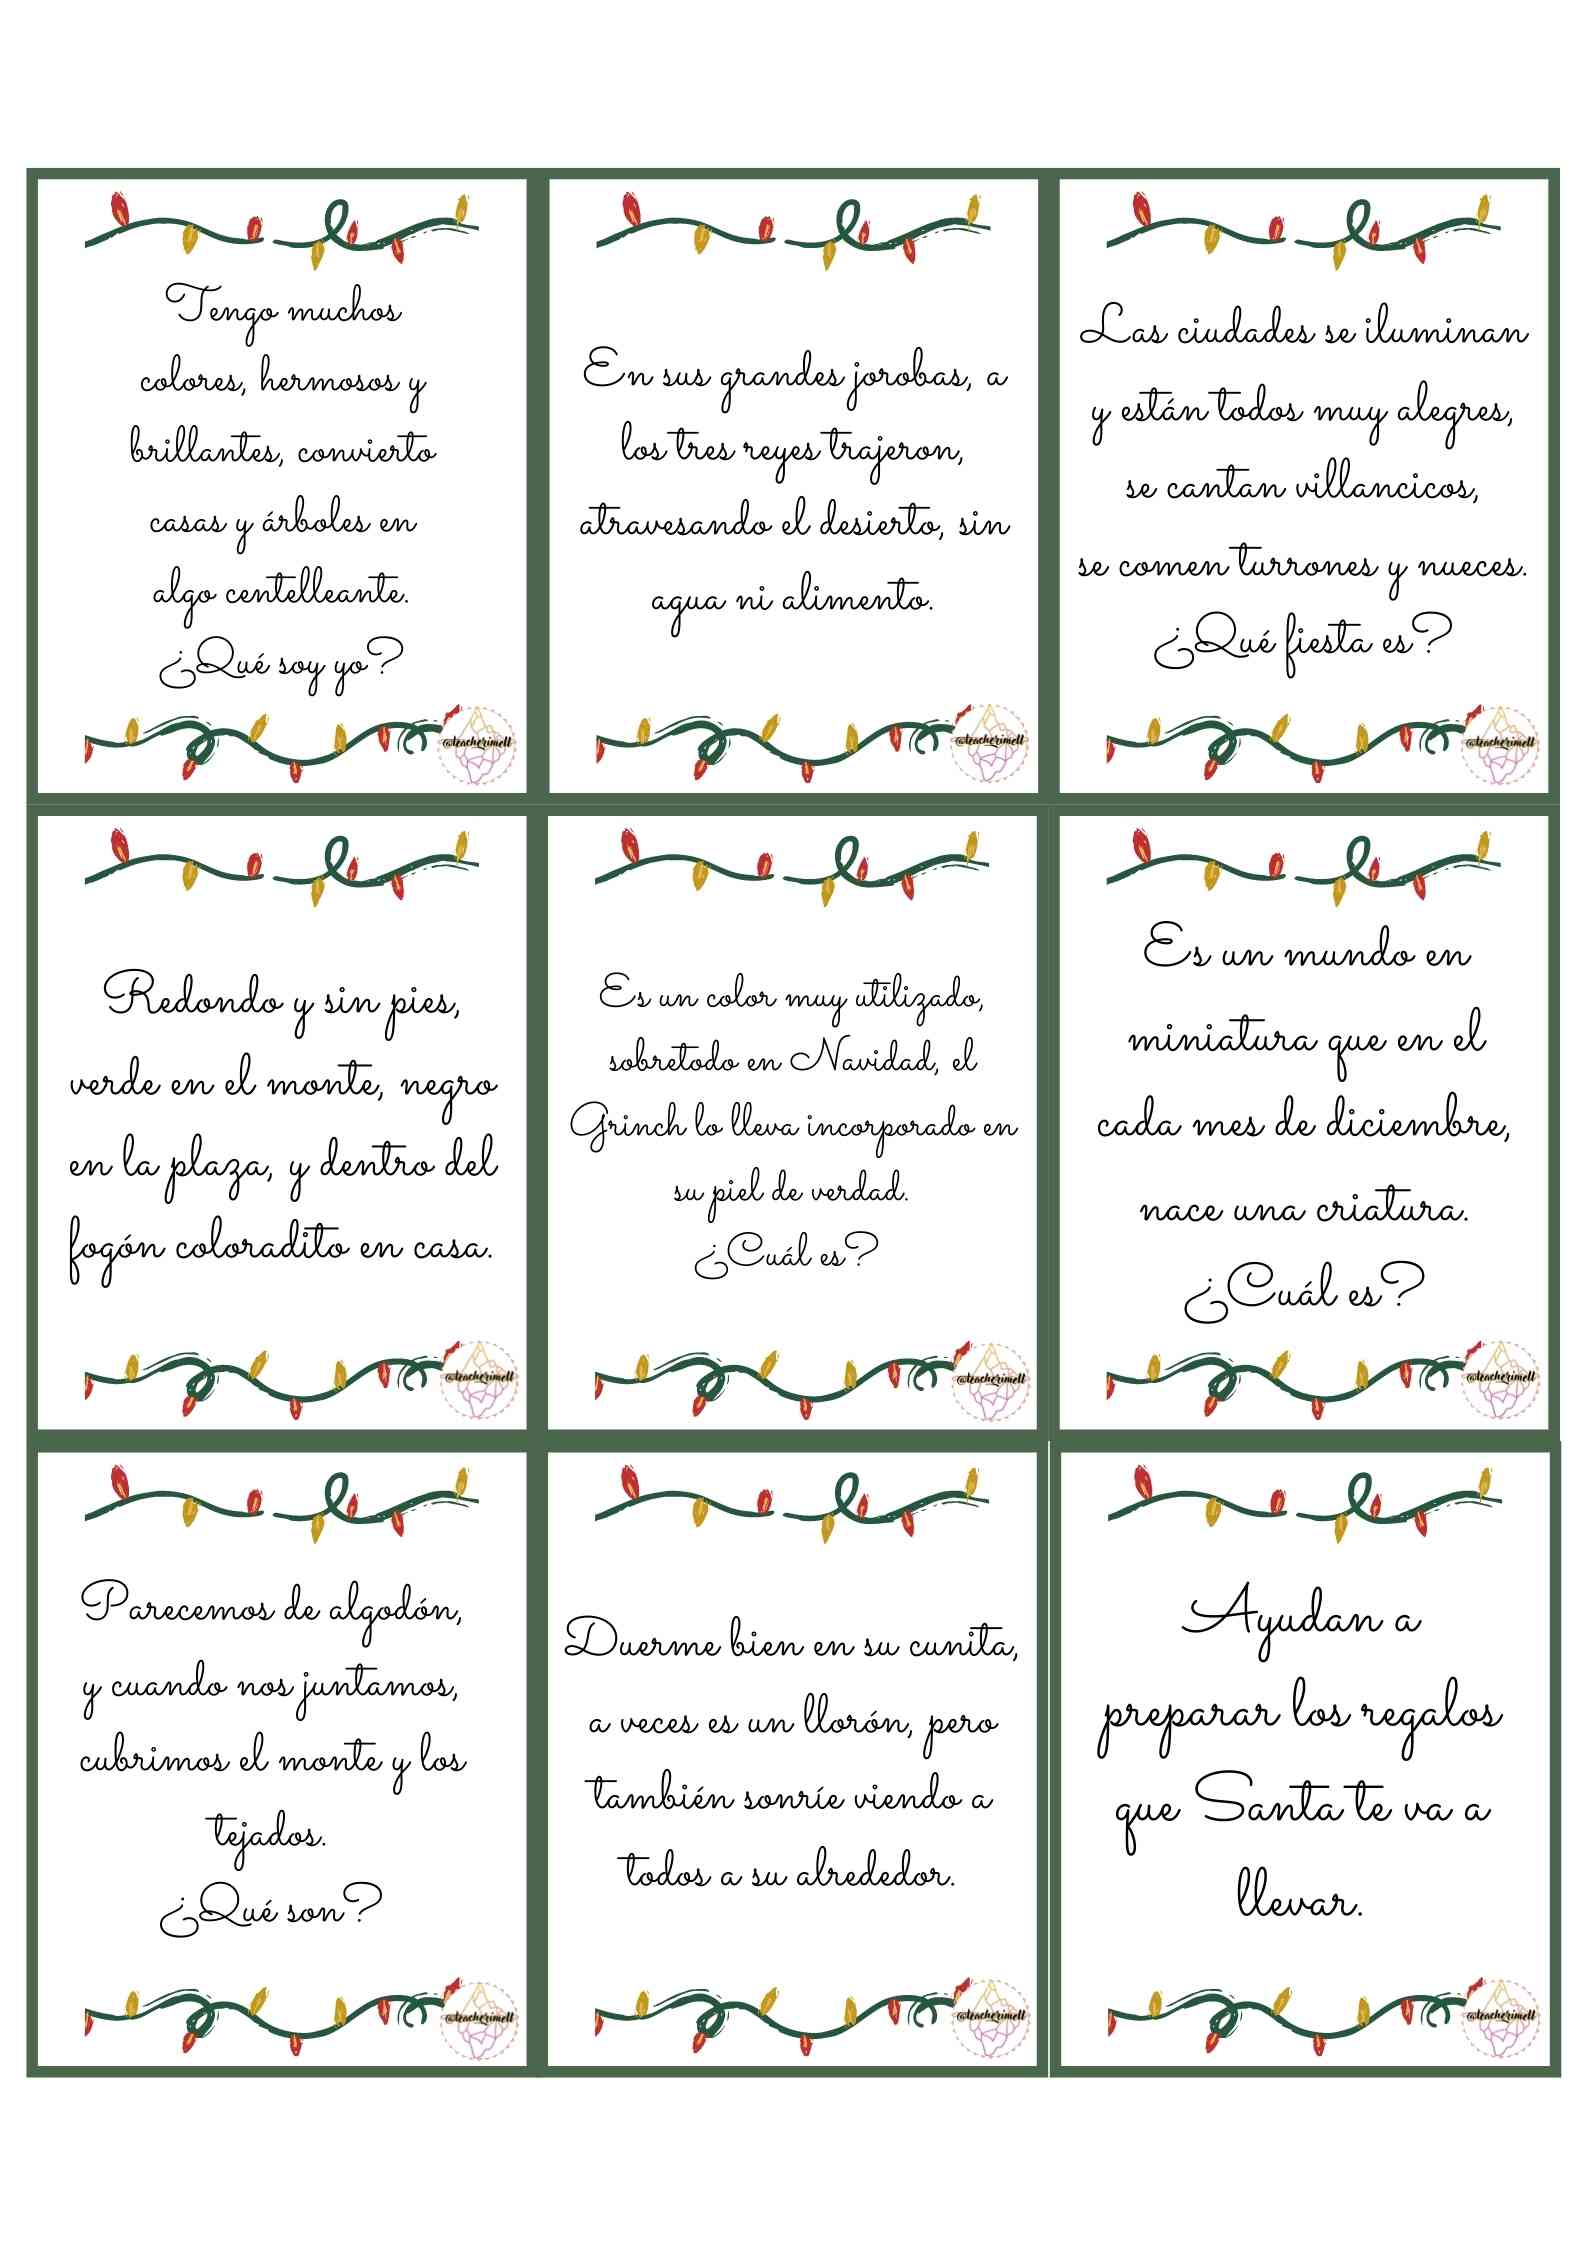 Tengo muchos
colores, hermosos y
brillantes, convierto
casas y árboles en
algo centelleante.
¿Qué soy yo?
@teacherimell
En sus grandes jorobas, a
los tres reyes trajeron,
atravesando el desierto, sin
agua ni alimento.
@teacherimell
Las ciudades se iluminan
y están todos muy alegres,
se cantan villancicos,
se comen turrones y nueces.
¿Qué fiesta es?
@teacherimell
Redondo y sin pies,
verde en el monte, negro
en la plaza, y dentro del
fogón coloradito en casa.
@teacherimell
Es un color muy utilizado,
sobretodo en Navidad, el
Grinch lo lleva incorporado en
su piel de verdad.
¿Cuál es?
@teacherimell
Es un mundo en
miniatura que en el
cada mes de diciembre,
nace una criatura.
¿Cuál es?
@teacherimell
Parecemos de algodón,
y cuando nos juntamos,
cubrimos el monte y los
tejados.
¿Qué son?
@teacherimell
Duerme bien en su cunita,
a veces es un llorón, pero
también sonríe viendo a
todos a su alrededor.
@teacherimell
Ayudan a
preparar los regalos
que Santa te va a
llevar.
@teacherimell